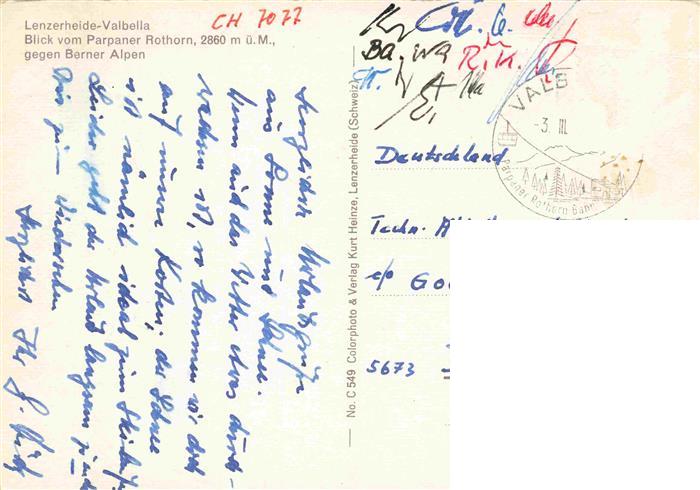 Lenzerheide-Valbella
Blick vom Parpaner Rothorn, 2860 m ü.M.,
gegen Berner Alpen
CH 7077
Herzliche Urlaubsgrüße
aus Sonne und Schnee.
Wenn auch das Wetter etwas durch-
wachsen ist, so kommen wir doch
auf unsere Kosten; der Schnee
ist nämlich ideal zum Skilaufen
Leider geht der Urlaub langsam zu Ende
Bis zum Wiedersehen
Herzlichst Ihr
No. C 549 Colorphoto & Verlag Kurt Heinze, Lenzerheide (Schweiz)
Ba. Wa R.K.
VALB
-3. III
Parpaner Rothorn Bahn
Deutschland
Techn.
c/o Go
5673